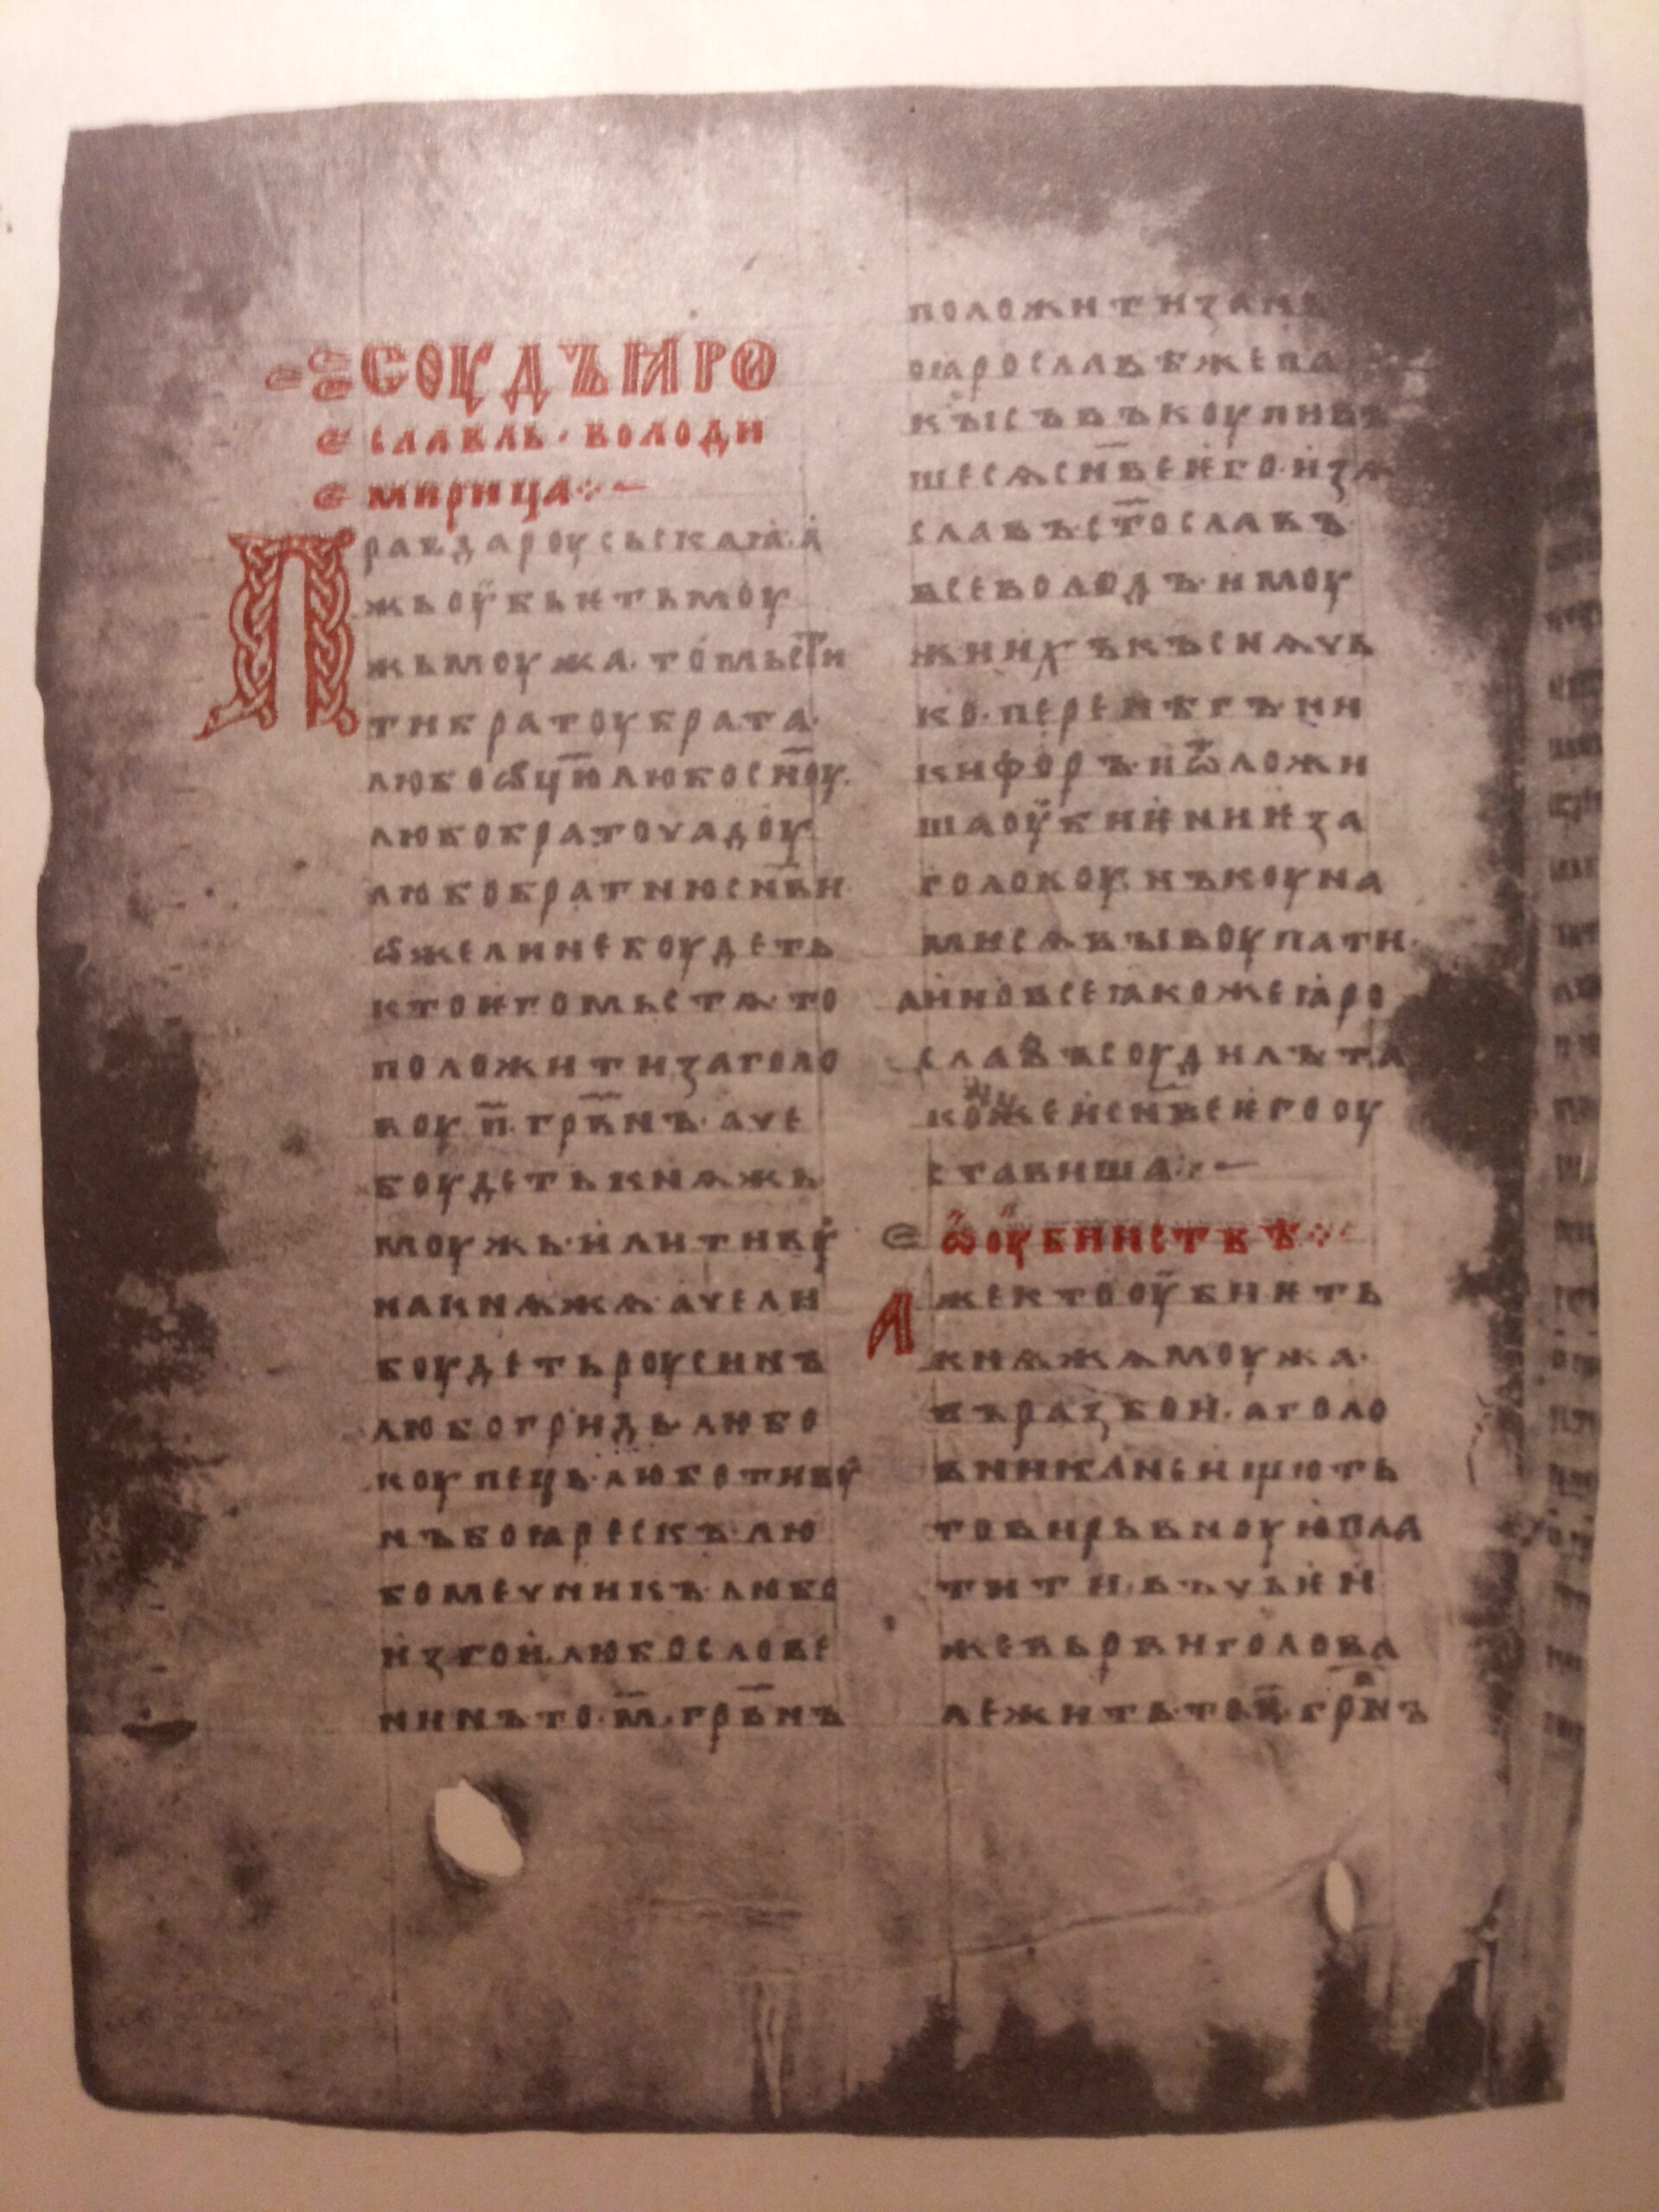 СОУДЪ ꙖРО
СЛАВЛЬ · ВОЛОДИ
МИРИЦА ⁘ —
ПРАВДА РОУСЬСКАꙖ · А
ЖЬ ОУБЬѤТЬ МОУ
ЖЬ МОУЖА · ТО МЬСТИ
ТИ БРАТОУ БРАТА ·
ЛЮБО ѠЦ҃Ю ЛЮБО СН҃ОУ ·
ЛЮБО БРАТОУЧАДОУ ·
ЛЮБО БРАТНЮ СН҃ВИ ·
ѠЖЕ ЛИ НЕ БОУДЕТЬ
КТО ѤГО МЬСТѦ · ТО
ПОЛОЖИТИ ЗА ГОЛО
ВОУ · П҃ · ГРВ҃НЪ · АЧЕ
БОУДЕТЬ КНѦЖЬ
МОУЖЬ · ИЛИ ТИВУ
НА КНѦЖѦ · АЧЕ ЛИ
БОУДЕТЬ РОУСИНЪ
ЛЮБО ГРИДЬ · ЛЮБО
КОУПЕЦЬ · ЛЮБО ТИВУ
НЪ БОꙖРЕСКЪ · ЛЮ
БО МЕЧНИКЪ · ЛЮБО
ИЗГОИ · ЛЮБО СЛОВЕ
НИНЪ ТО · М҃ · ГРВ҃НЪ
ПОЛОЖИТИ ЗА НЬ
О ꙖРОСЛАВѢ ЖЕ ПА
КЫ СЪВЪКОУПИВЪ
ШЕСѦ СН҃ВЕ ѤГО · ИЗѦ
СЛАВЪ · СТ҃ОСЛАВЪ ·
ВСЕВОЛОДЪ · И МОУ
ЖИ ИХЪ КЪСНѦЧЬ
КО · ПЕРЕНѢГЪ · НИ
КИФОРЪ · И Ѿ ЛОЖИ
ША ОУБИѤНИѤ ЗА
ГОЛОВОУ · НЪ КОУНА
МИ СѦ ВЫКОУПАТИ ·
А ИНО ВСЕ ꙖКОЖЕ ꙖРО
СЛАВЪ СОУДИЛЪ ТА
КОЖЕ И СН҃ВЕ ѤГО ОУ
СТАВИША ⁘ —
Ѡ ОУБИИСТВѢ ⁘
АЖЕ КТО ОУБИѤТЬ
КНѦЖѦ МОУЖА ·
ВЪ РАЗБОИ · А ГОЛО
ВНИКА НЕ ИЩЮТЬ
ТО ВИРЬВНОУЮ ПЛА
ТИТИ · ВЪ ЧЬѤИ
ЖЕ ВЬРВИ ГОЛОВА
ЛЕЖИТЬ · ТО П҃ · ГРВ҃НЪ